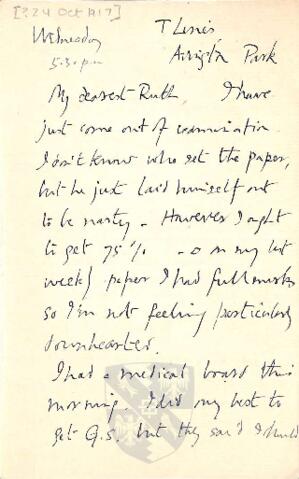 [? 24 Oct 1917]
Wednesday
5.30 p.m.
T Lines
Avington Park
My dearest Ruth I have
just come out of examination.
I don't know who set the paper,
but he just laid himself out
to be nasty - However I ought
to get 75% - & on my last
weekly paper I had full marks
so I'm not feeling particularly
downhearted.
I had a medical board this
morning. I did my best to
get G.S. but they said I should